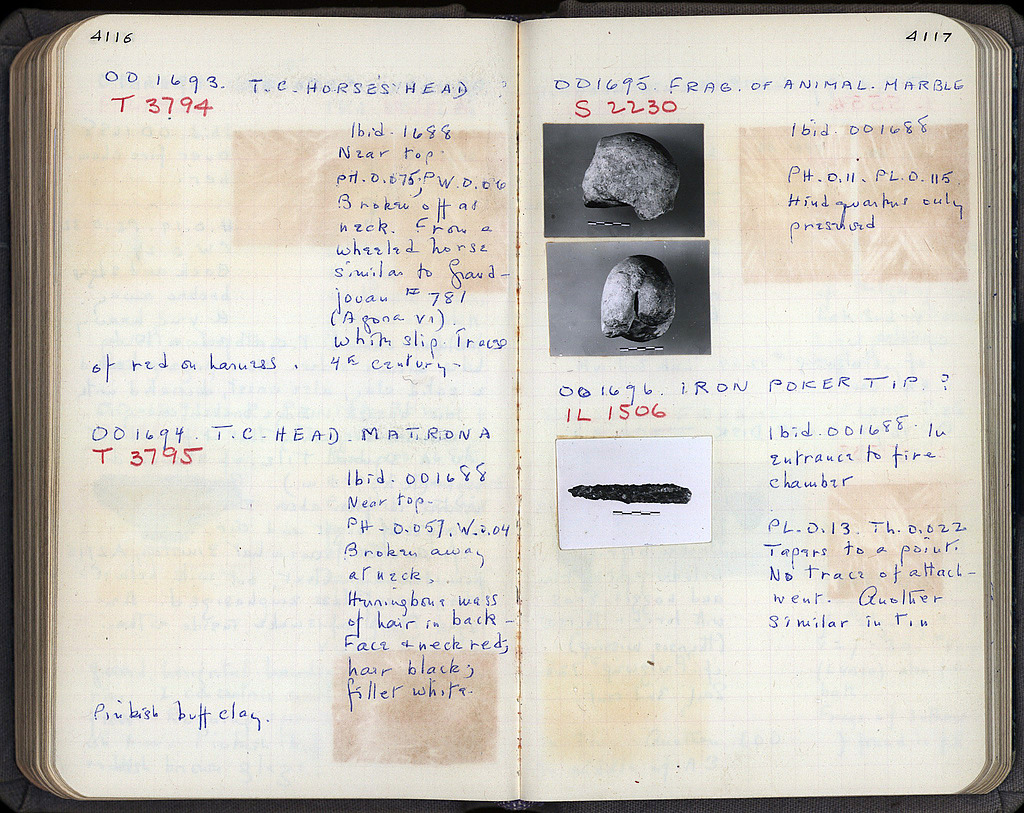 4116
OO 1693. T.C. HORSES HEAD ?
T 3794
Ibid. 1688
Near top.
PH. 0.075; PW. 0.06
Broken off at
neck. From a
wheeled horse
similar to Grand-
jouan № 781
(Agora VI).
White slip. Traces
of red on harness. 4th century.
OO 1694. T.C. HEAD. MATRONA
T 3795
Ibid. 001688
Near top.
PH. 0.057. W. 0.04
Broken away
at neck.
Herringbone mass
of hair in back.
Face & neck red;
hair black;
fillet white.
Pinkish buff clay.
4117
OO 1695. FRAG. OF ANIMAL. MARBLE
S 2230
Ibid. 001688
PH. 0.11. PL. 0.115
Hindquarters only
preserved
OO 1696. IRON POKER TIP. ?
IL 1506
Ibid. 001688. In
entrance to fire
chamber
PL. 0.13. Th. 0.022
Tapers to a point.
No trace of attach-
ment. Another
similar in tin